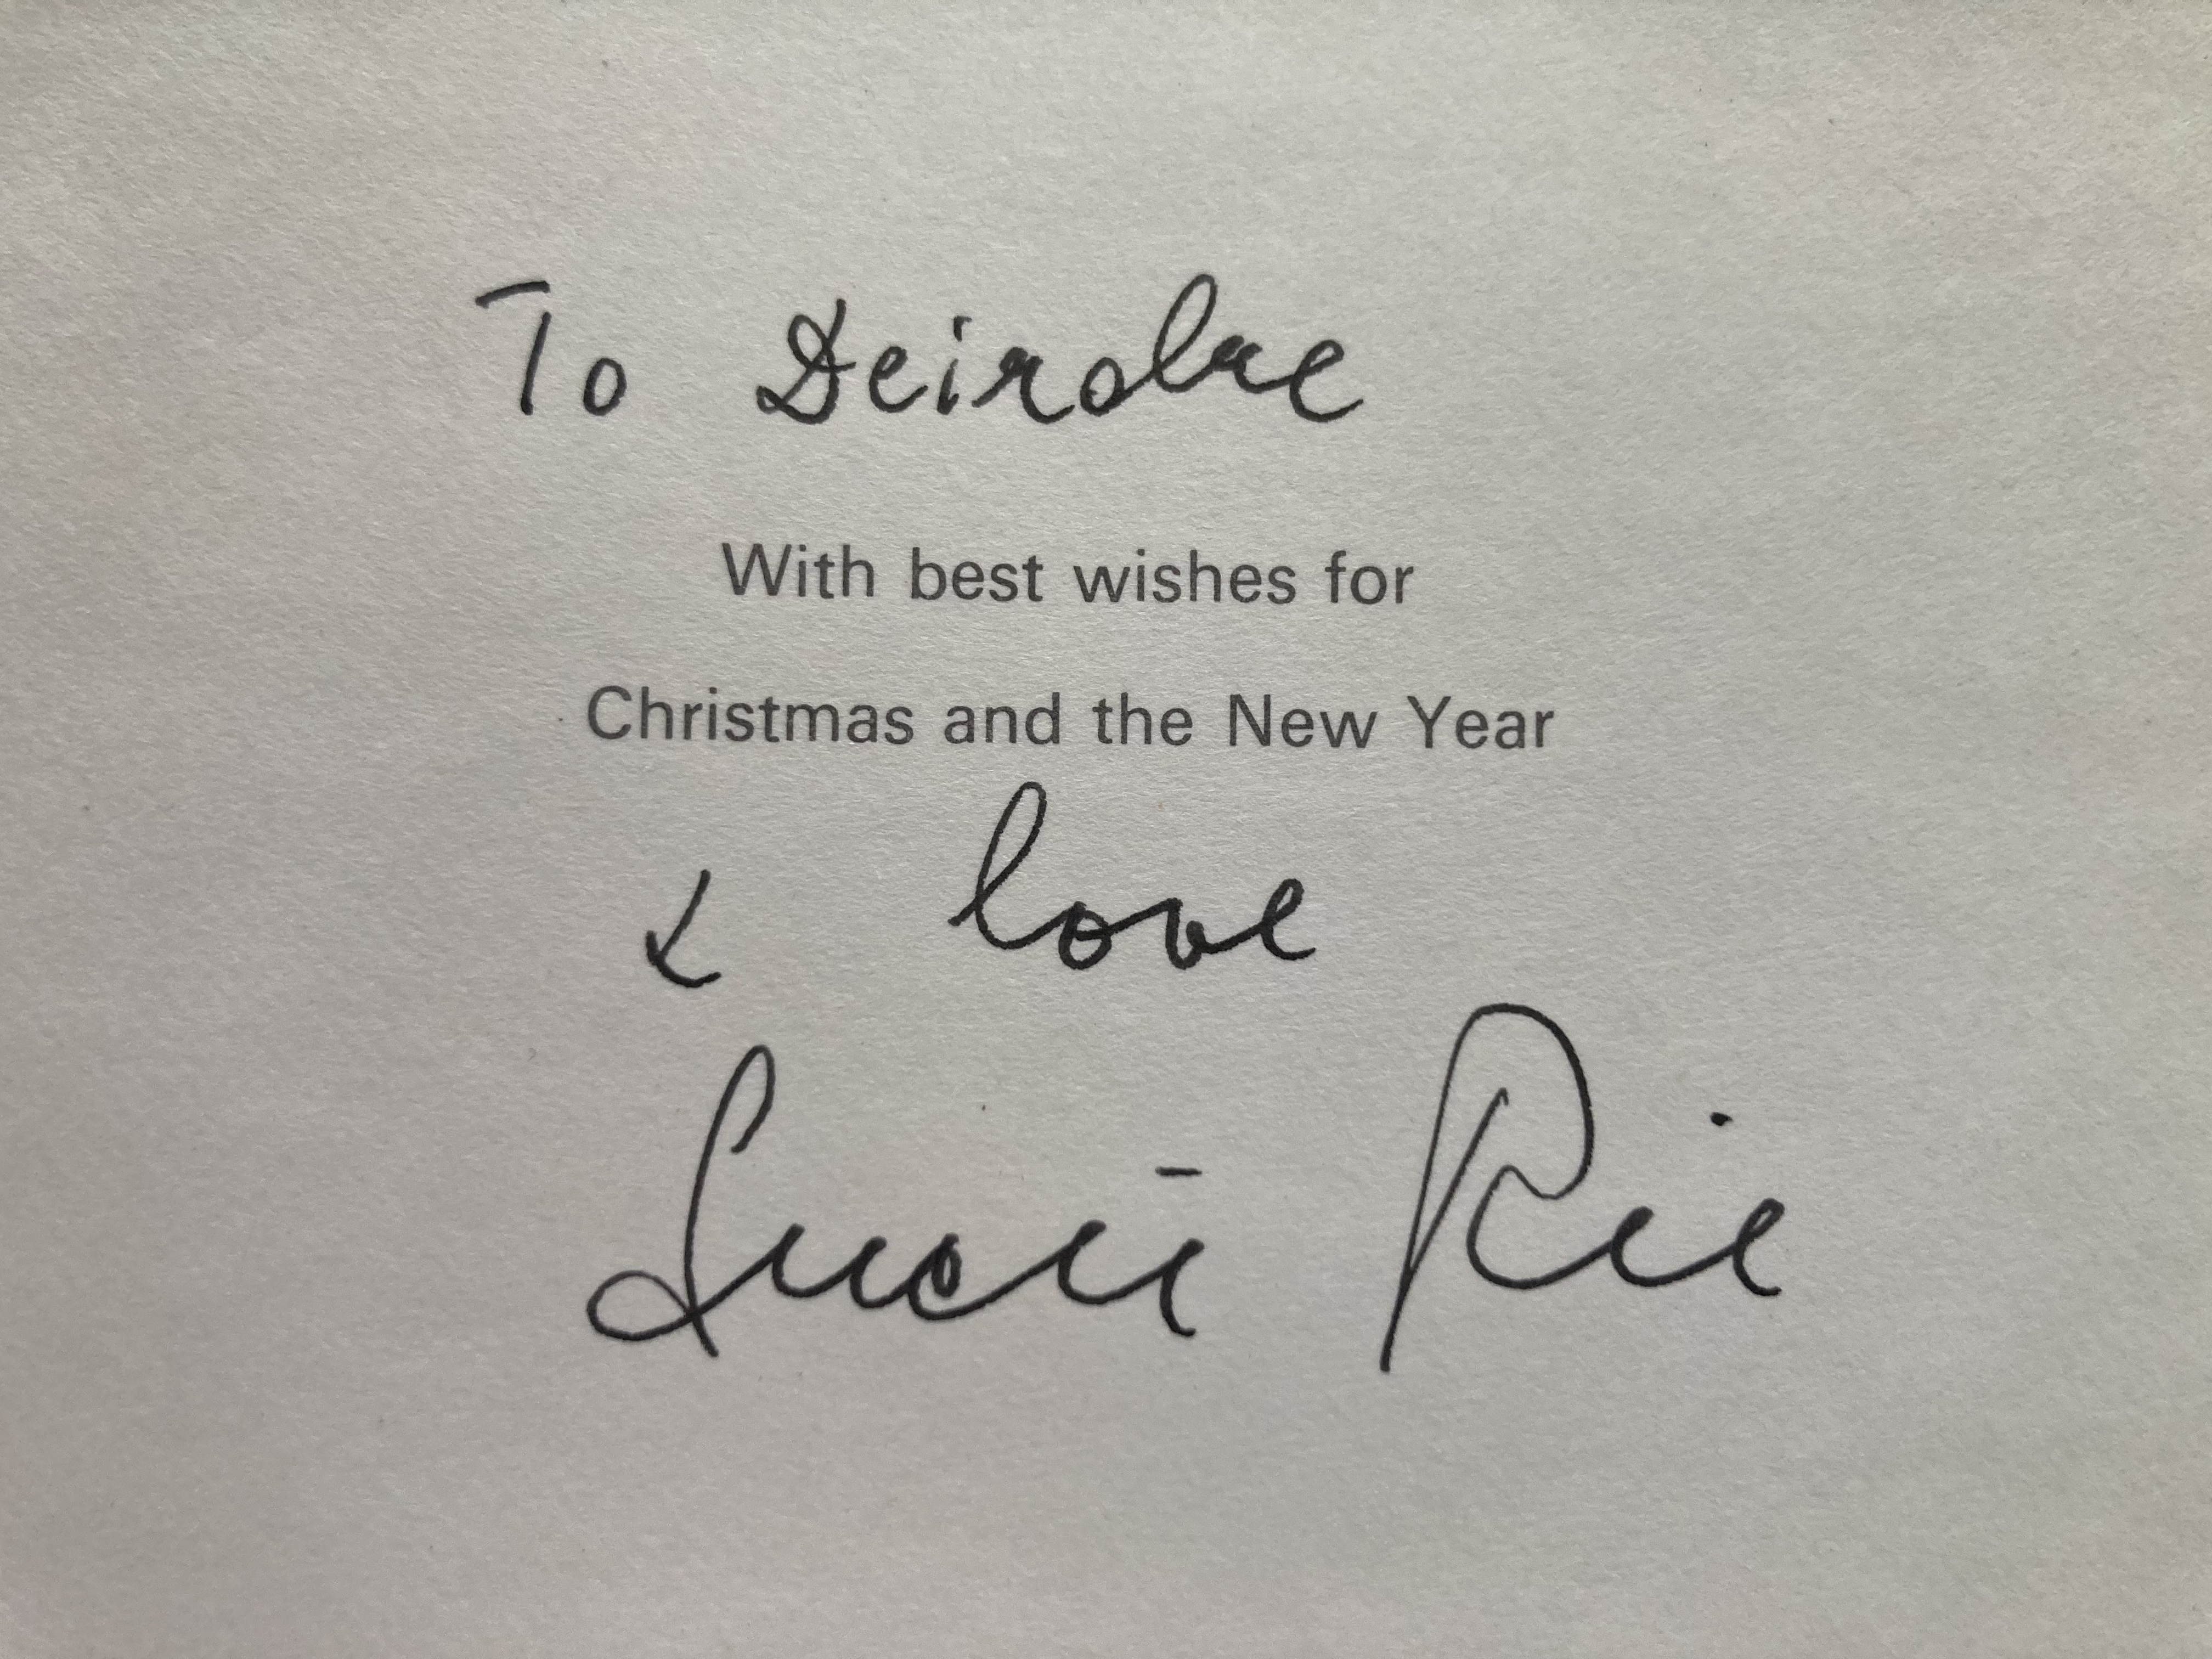 To Deirdre
With best wishes for
Christmas and the New Year
& love
Lucie Rie